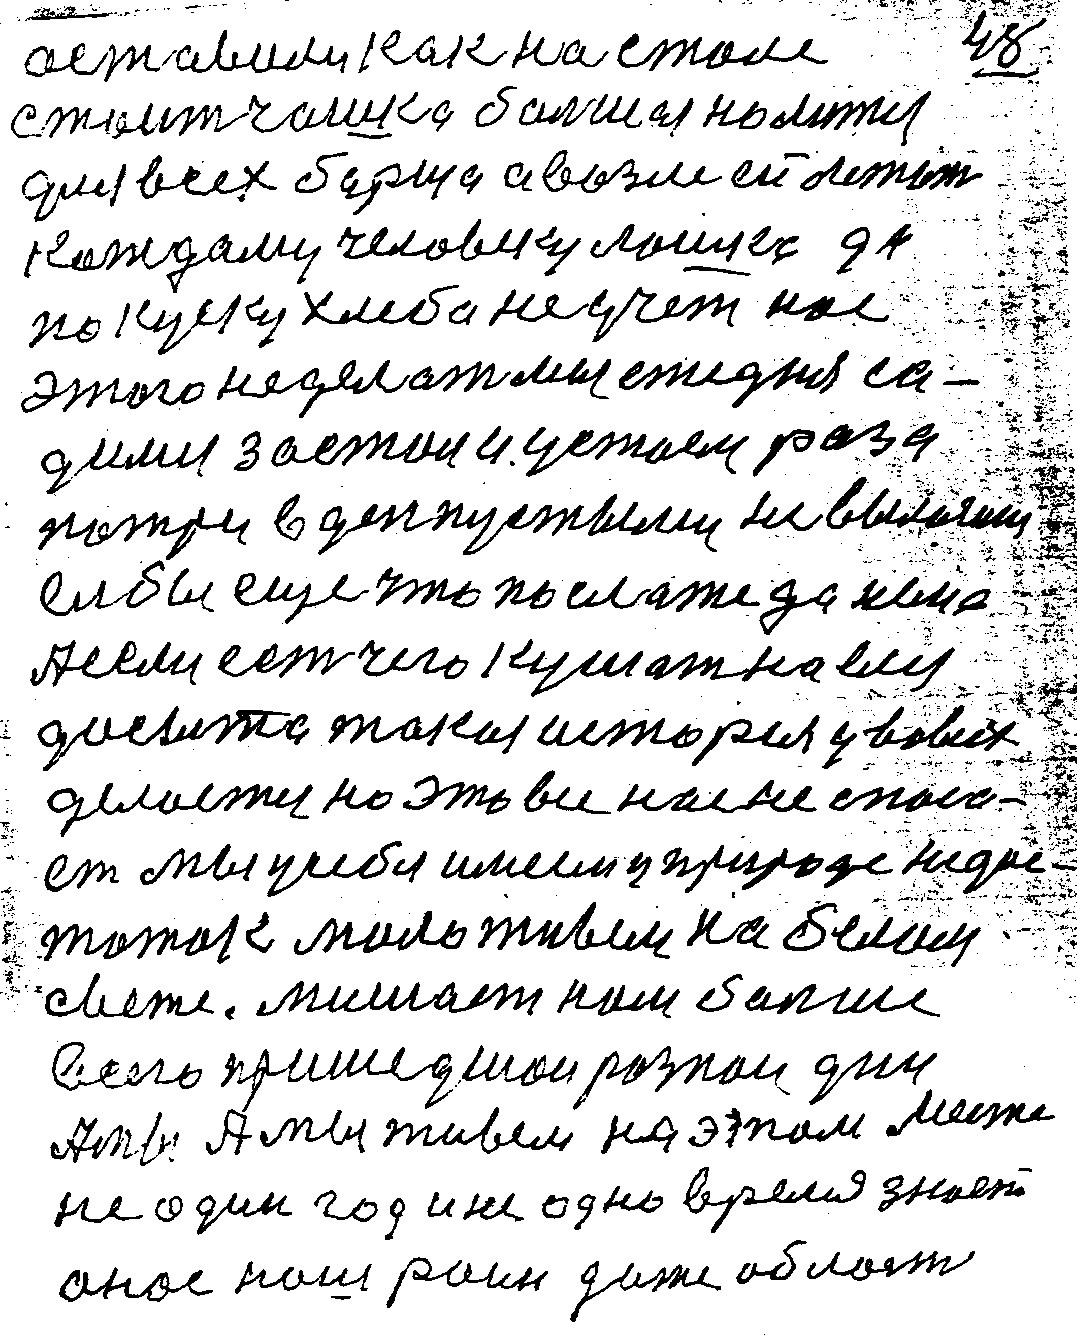 48
оставили как на столе
стоит чашка болшая налитыя
для всех барща а возле ей лежат
каждаму человеку лошка да
по куску хлеба не учет нас
этого неделат мы ежедня са-
дими за стол и устоем раза
потри в ден пустыми не
ели бы еще что после же да нема
А если ест чего кушат наели
досыта такая история у вовсех
делости но это все нас не спаса-
ет мы учебя имеем у природе недос-
таток мало живем на белом
свете. мишает нам балше
всего пришедшои разнои дни
Амы А мы живем на этом месте
не один год и не одно время знает
онас наш раин даже област